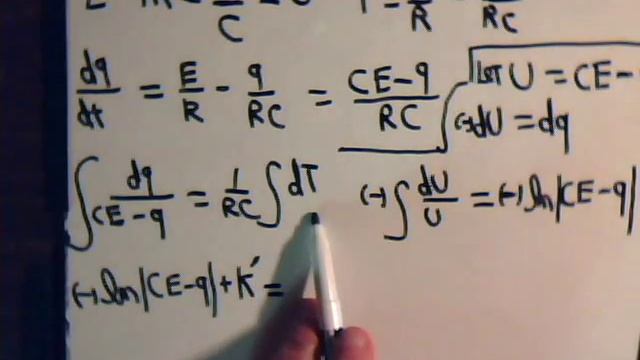 dq/dt = E/R - q/RC = CE-q/RC
LET U = CE-
(-)dU = dq
∫ dq/CE-q = 1/RC ∫ dT
(-)∫ dU/U = (-)ln|CE-q|
(-)ln|CE-q|+K' =